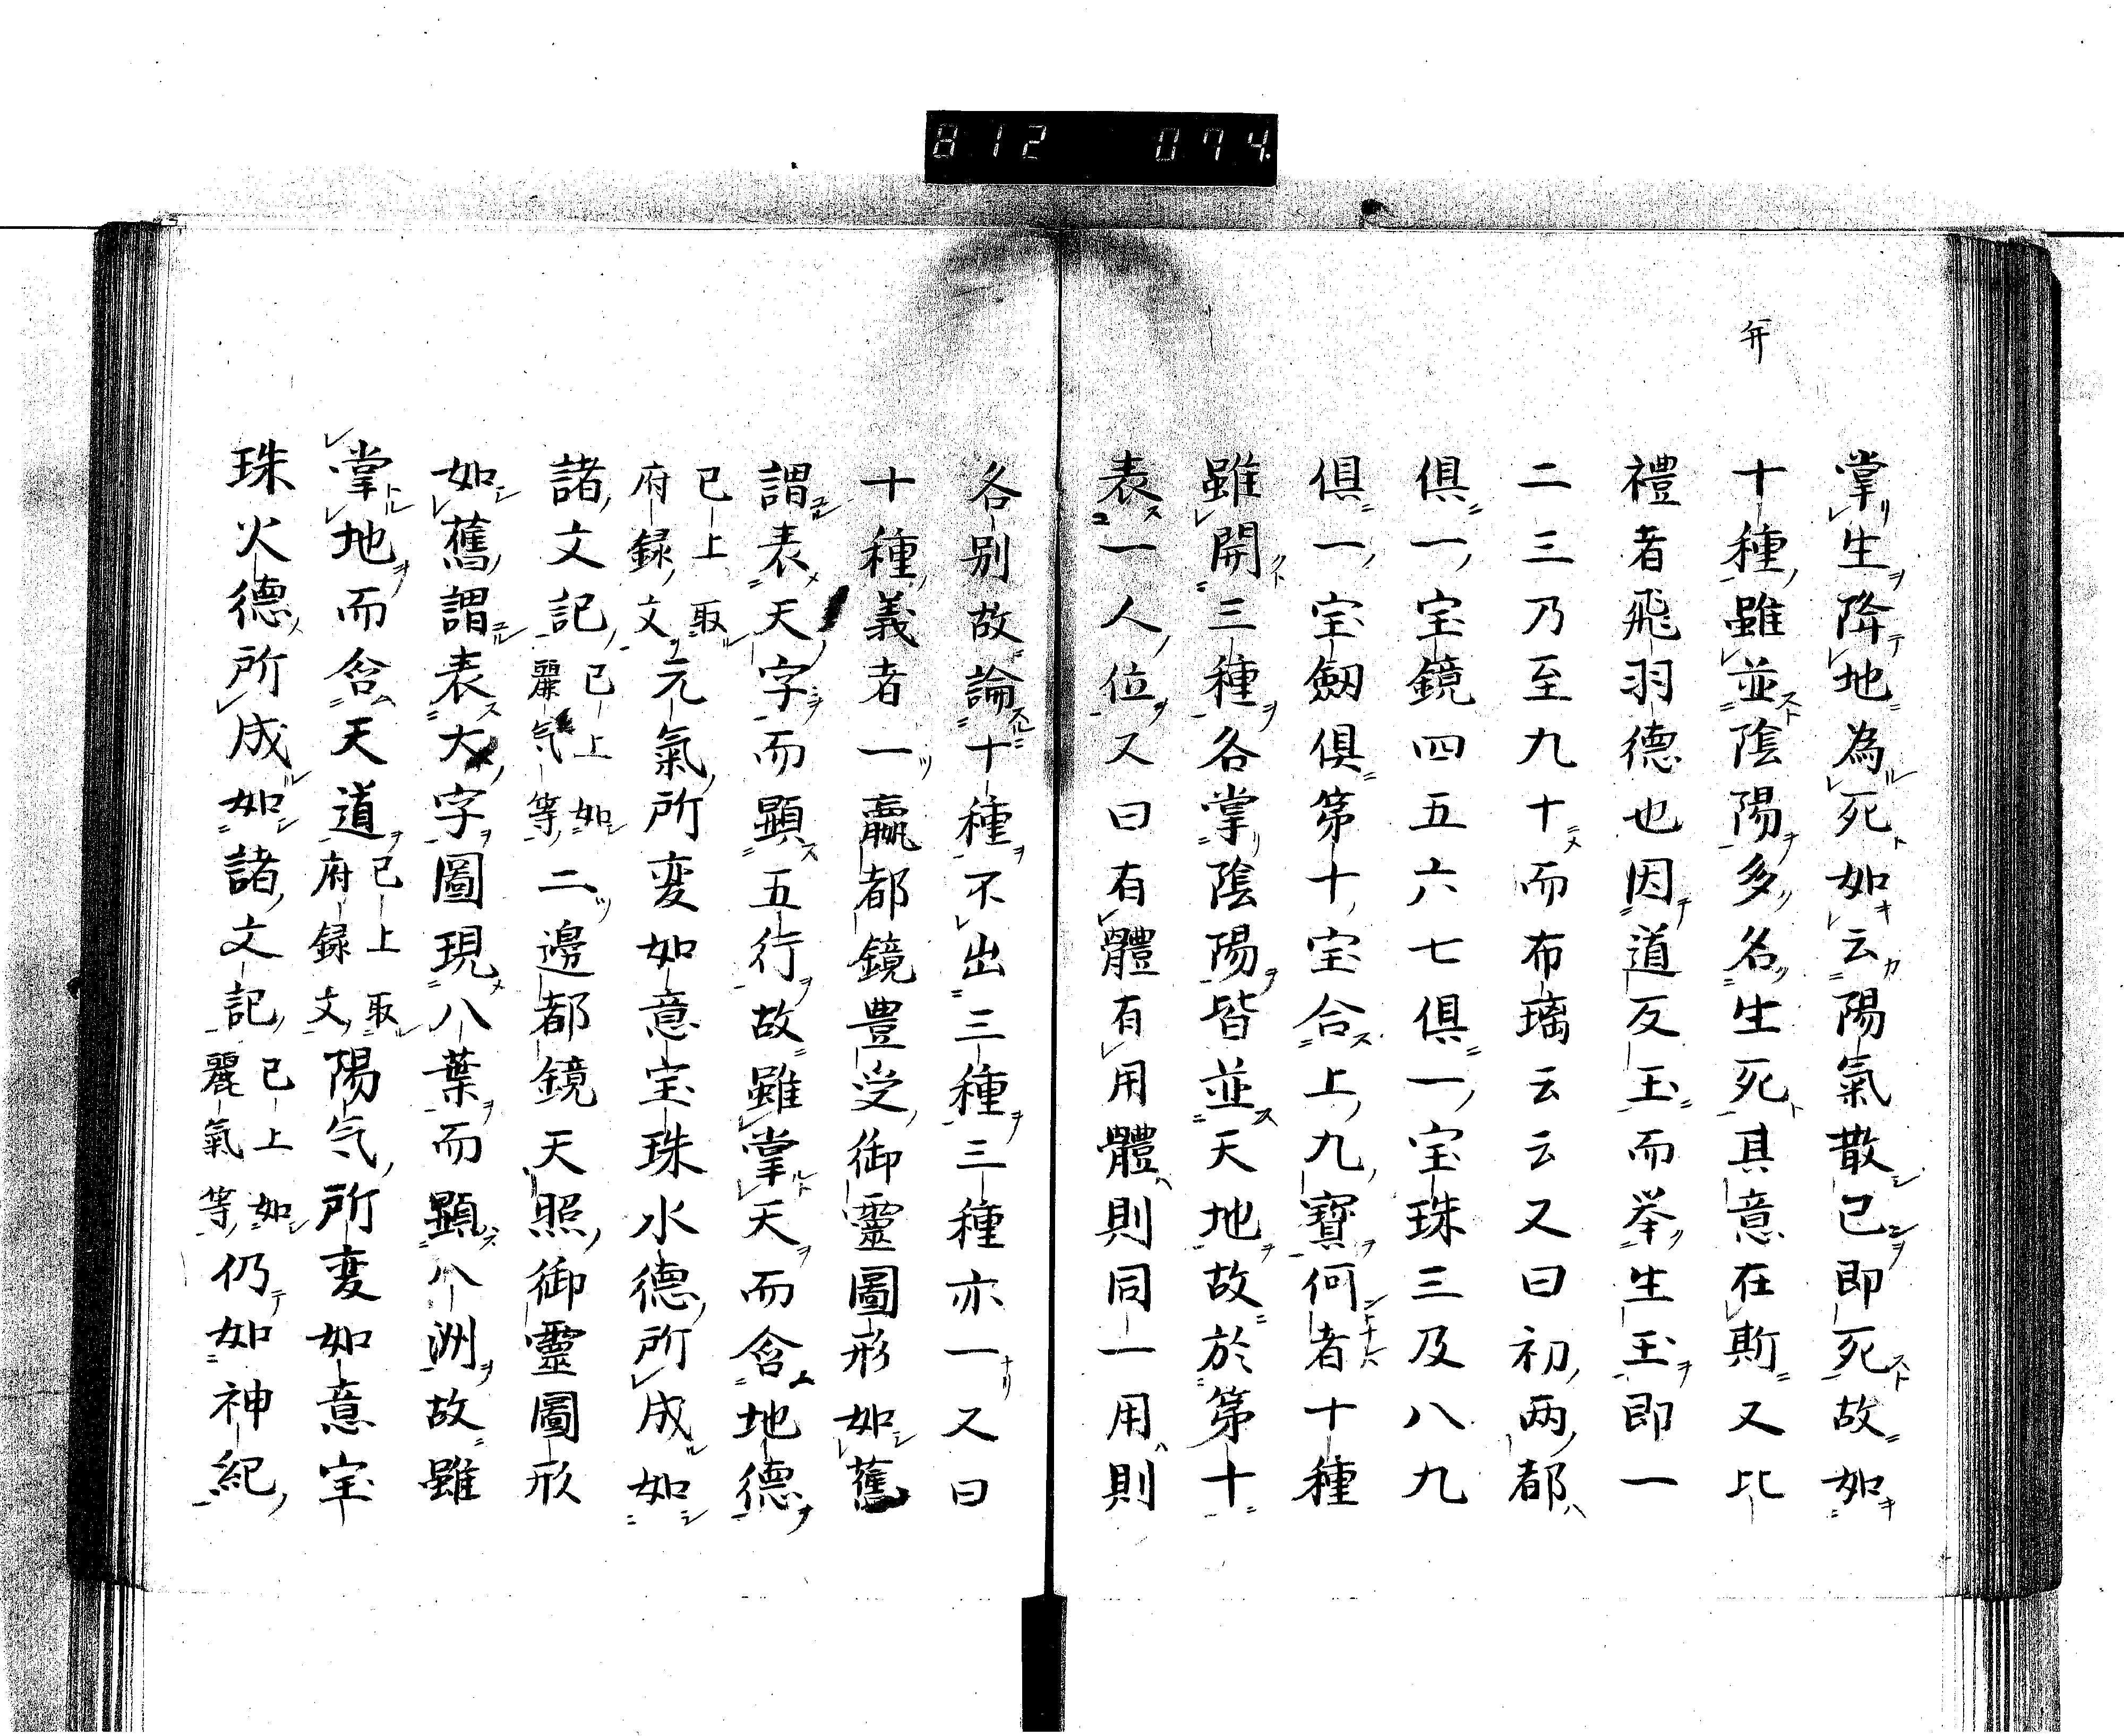 812 074.
弁
掌生降地為死如云陽氣散已即死故如
十種雖並陰陽多名生死其意在斯又比
禮者飛羽德也因道反玉而挙生玉即一
二三乃至九十而布璃云云又曰初両都
俱一宝鏡四五六七俱一宝珠三及八九
俱一宝劔俱第十宝合上九寶何者十種
雖開三種各掌陰陽皆並天地故於第十
表一人位又曰有體有用體則同一用則
各別故論十種不出三種三種亦一又曰
十種義者一瀛都鏡豊受御靈圖形如舊
謂表天字而顕五行故雖掌天而含地德
已上取府録文元氣所変如意宝珠水德所成如
諸文記已上如麗气等二邊都鏡天照御靈圖形
如舊謂表大字圖現八葉而顕八洲故雖
掌地而含天道已上取府録文陽气所変如意宝
珠火德所成如諸文記已上如麗氣等仍如神紀